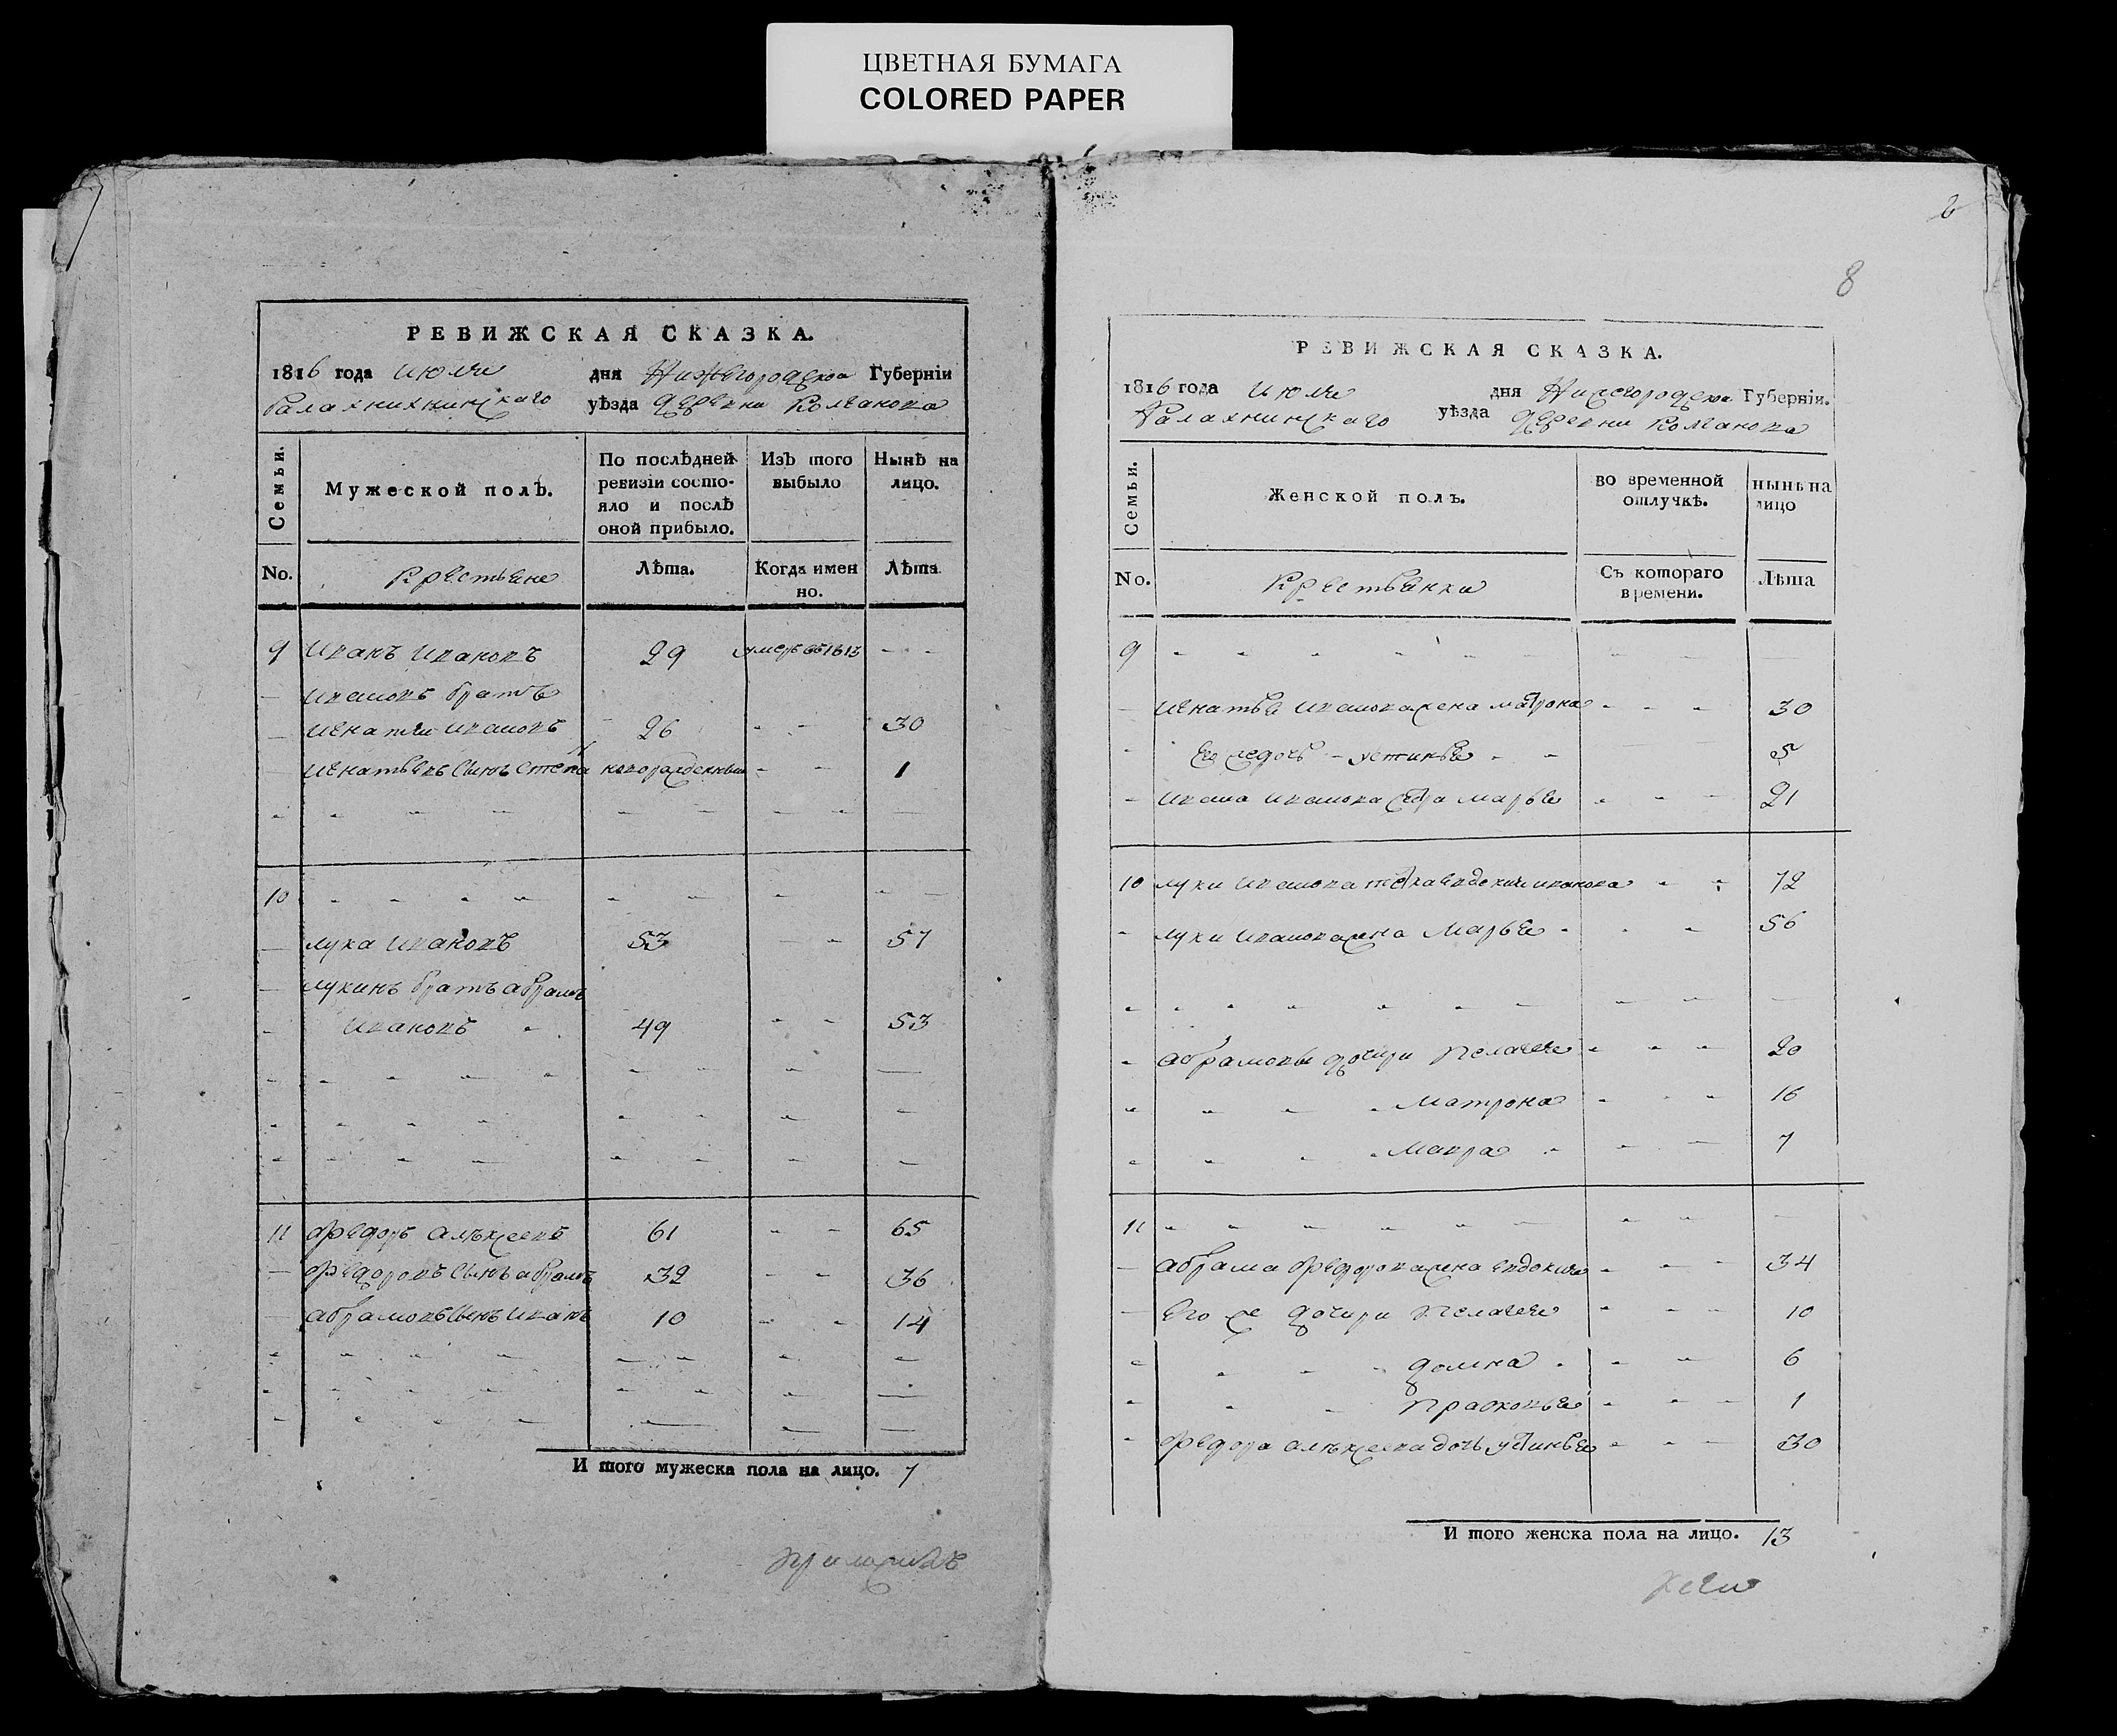 ЦВЕТНАЯ БУМАГА
COLORED PAPER
РЕВИЖСКАЯ СКАЗКА.
1816 года июля дня Нижегородской Губерніи
Балахнихнинскаго уѣзда деревни Колчанова
Семьи. Мужеской полъ. По послѣдней ревизіи состояло и послѣ оной прибыло. Изъ того выбыло Нынѣ на лицо.
No. Крестьяне Лѣта. Когда имен но. Лѣта
9 Иванъ Ивановъ 29 умеръ въ 1813 - -
Ивановъ братъ
Игнатъи Ивановъ 26 - - 30
Игнатьевъ сынъ Степанъ новорожденный - - 1
10
лука Ивановъ 53 - - 57
лукинъ братъ абрамъ
Ивановъ 49 - - 53
11 Федоръ алѣксеевъ 61 - - 65
Федоровъ сынъ абрамъ 32 - - 36
абрамовъ сынъ Иванъ 10 - - 14
И того мужеска пола на лицо. 7
8
РЕВИЖСКАЯ СКАЗКА.
1816 года июля дня Нижегородской Губерніи.
Балахнинскаго уѣзда деревни Колчанова
Семьи. Женской полъ. во временной отлучкѣ. нынѣ на лицо
No. Крестьянки Съ котораго времени. Лѣта
9
Игнатья Иванова жена матрона - - - 30
Его же дочь - устинья - - 5
Ивана Иванова сестра марья - - - 21
10 луки Иванова тетка Евдокия иванова - - 72
луки Иванова жена Марья - - - 56
абрамовы дочери пелагея - - - 20
Матрона - - - 16
Мавра - - - 7
11
абрама Федорова жена Евдокия - - - 34
Его же дочери пелагея - - - 10
домна - - - 6
прасковья - - - 1
Федора алѣксеева дочь устинья - - - 30
И того женска пола на лицо. 13